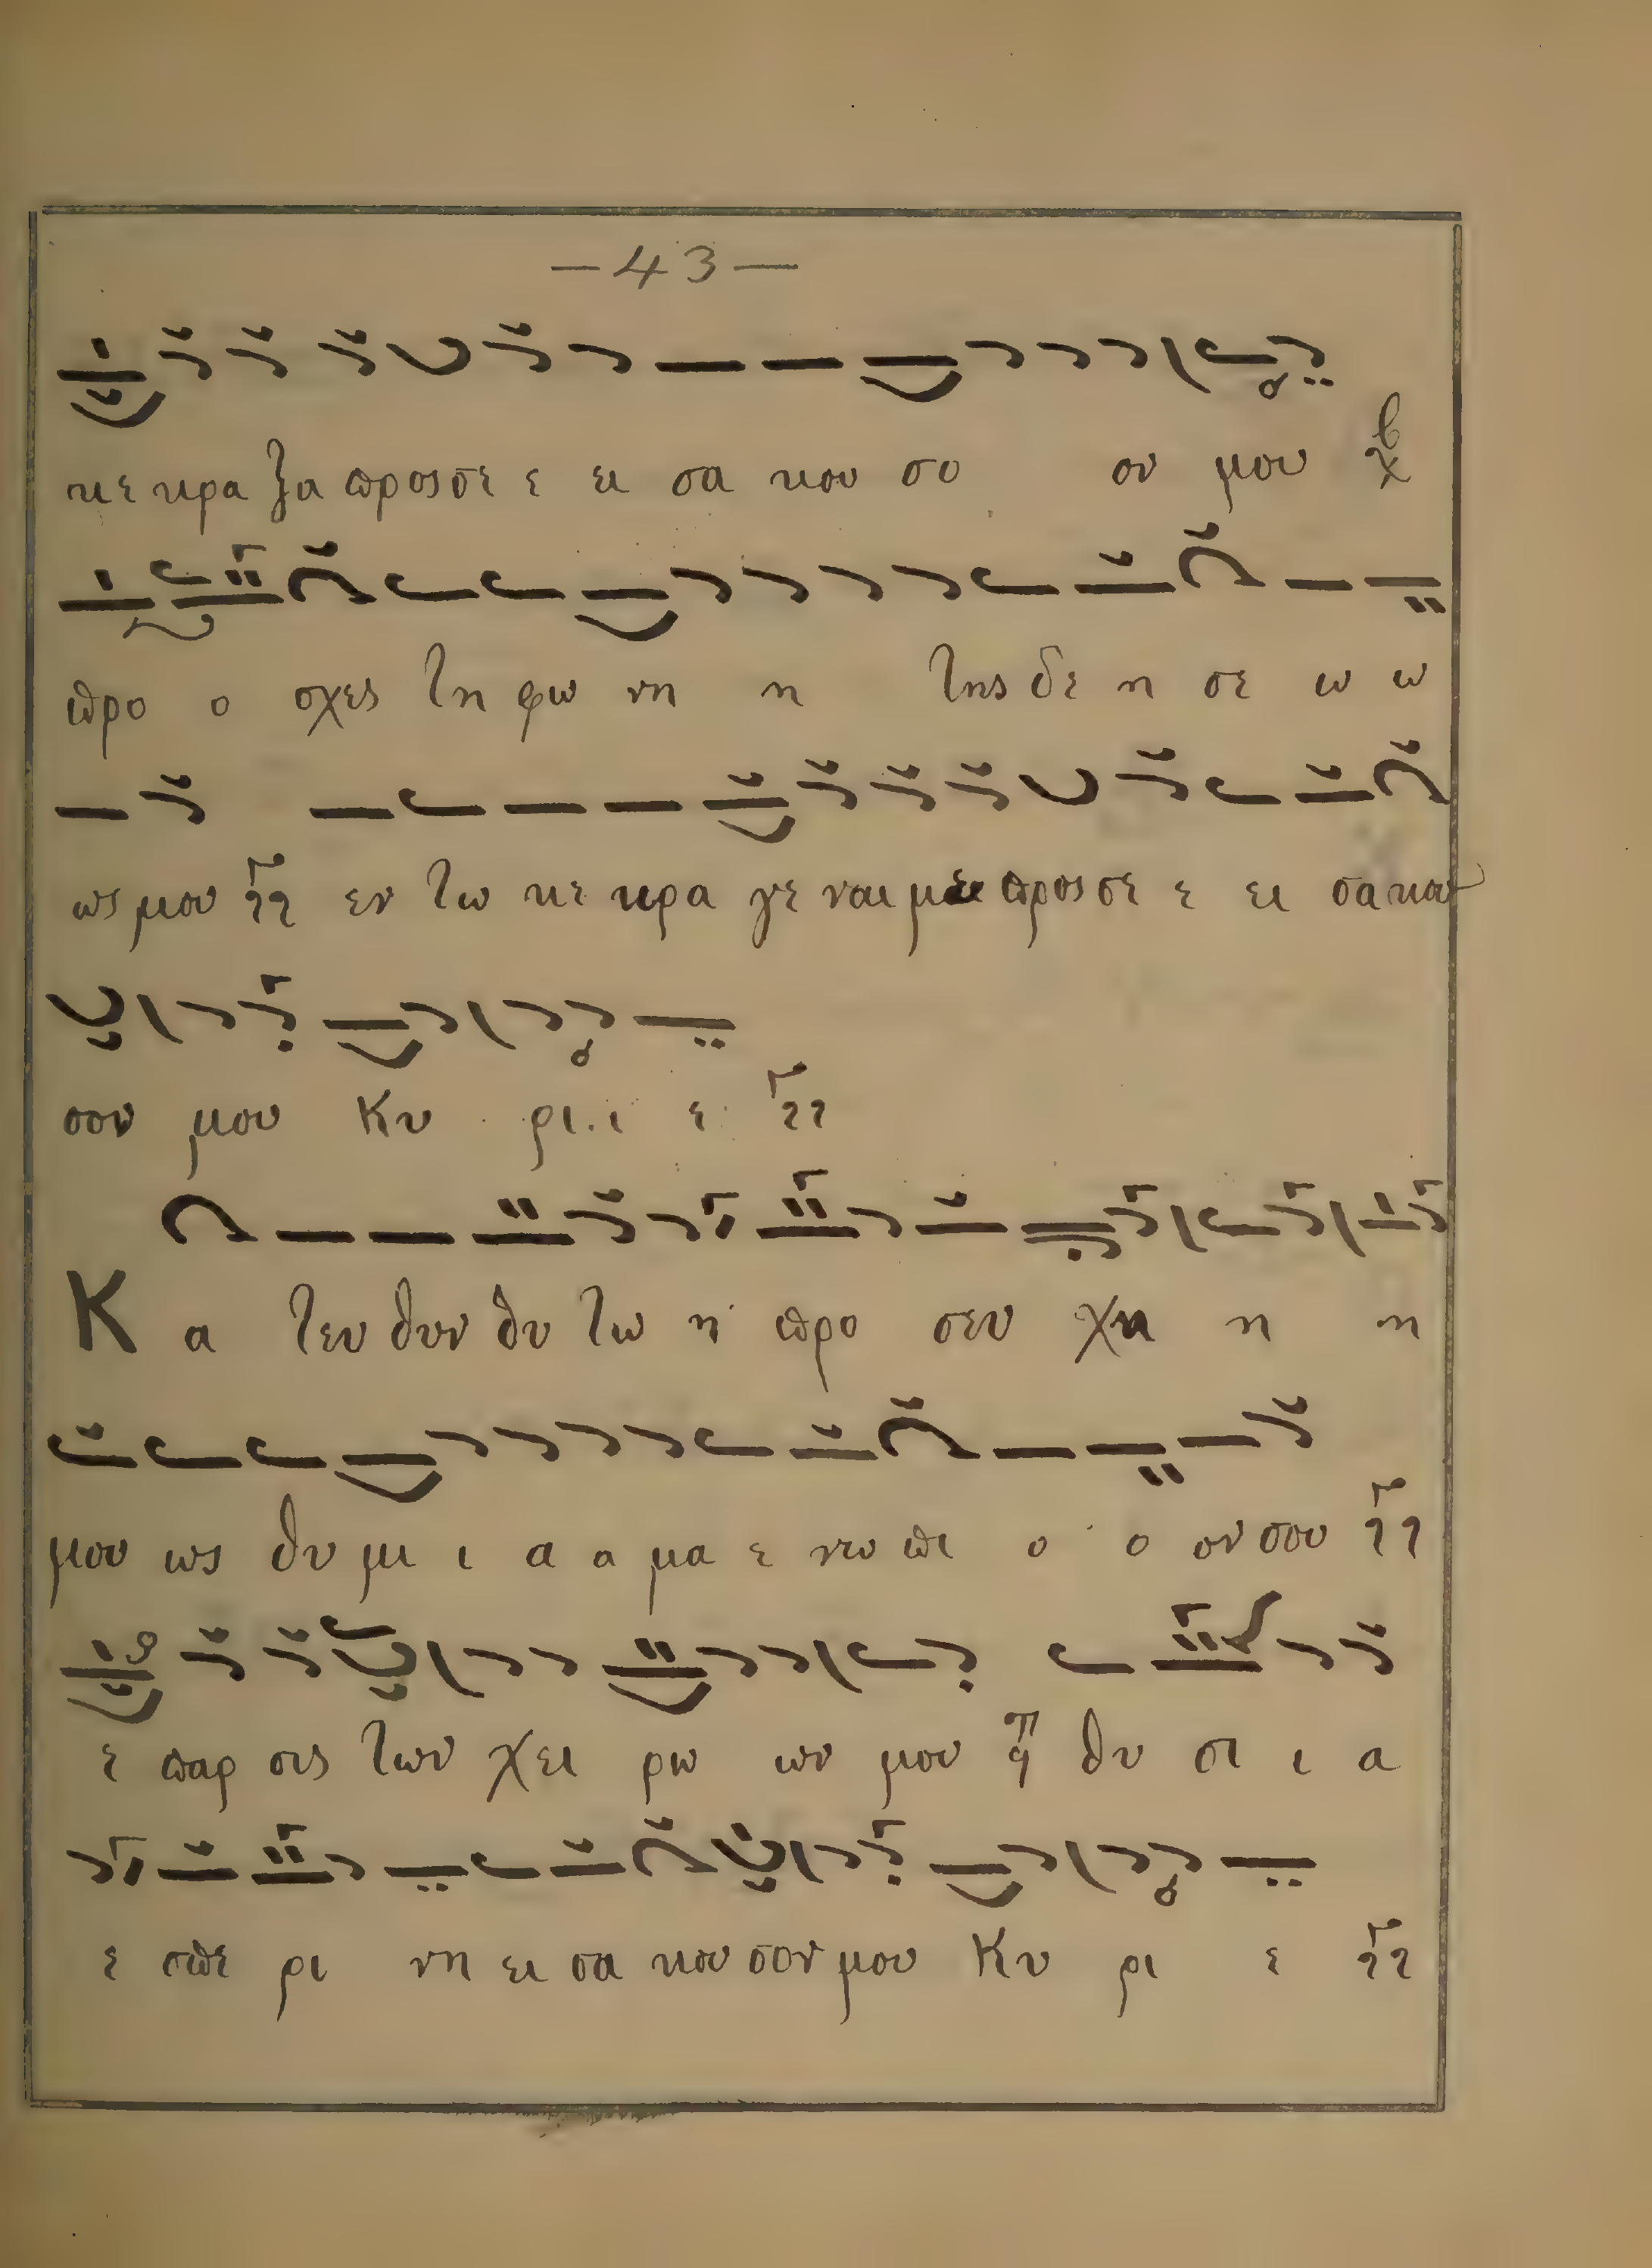 —43—
κε κρα ξα προς σε ε ει σα κου σο ον μου
προ ο σχες τη φω νη η της δε η σε ω ω
ως μου εν τω κε κρα γε ναι με προς σε ε ει σα κου
σον μου Κυ ρι ι ε
Κ α τευ θυν θυ τω η προ σευ χη η η
μου ως θυ μι ι α α μα ε νω πι ο ο ον σου
ε παρ σις των χει ρω ων μου θυ σι ι α
ε σπε ρι νη ει σα κου σον μου Κυ ρι ε